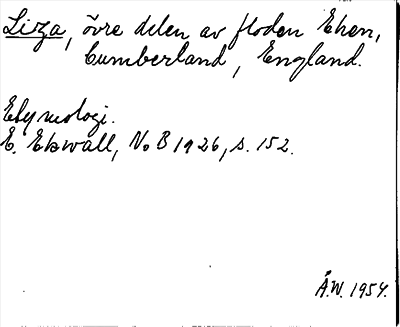 Liza, övre delen av floden Ehen,
Cumberland, England.
Etymologi.
E. Ekwall, NoB 1926, s. 152.
Å.W. 1954.